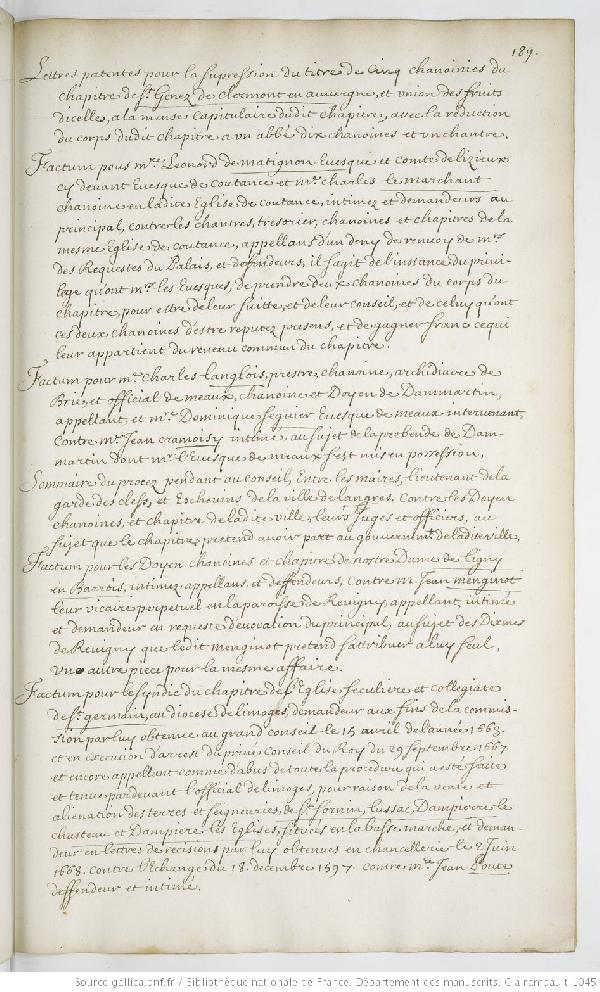 189.
Lettres patentes pour la supression du titre de Cinq chanoinies du
chapitre de St. Genez de Clermont en auvergne, et union des fruits
dicelle, a la mense Capitulaire dudit chapitre, avec la reduction
du corps dudit chapitre a un abbé dix chanoines et un chantre.
Factum pour mre. Leonord de matignon Evesque et comte de lizieux
cy devant Evesque de Coutance et mre. charles le marchant
chanoine en ladite Eglise de Coutance, intimez et demandeurs au
principal, contre les chantres, tresorier, chanoines et chapitres de la
mesme Eglise de Coutance, appellans d'un deny de renvoy de mrs.
des Requestes du Palais, et deffendeurs, il sagit de l'instance du privi-
lege qu'ont mrs. les Evesques, de prendre deux chanoines du corps du
chapitre, pour estre de leur suitte, et de leur conseil, et de celuy qu'ont
ces deux chanoines d'estre reputez presens, et de gagner franc ce qui
leur appartient du revenu commun du chapitre.
Factum pour mre. Charles Langlois, prestre, chanoine, archidiacre de
Brie, et official de meaux, chanoine et Doyen de Dammartin,
appellant, et mre. Dominique Seguier Evesque de meaux intervenant,
Contre mre. Jean Cramoisy intimé, au sujet de la prebende de Dam-
martin dont mr. l'Evesque de meaux s'est mis en possession.
Sommaire du procez pendant au Conseil, Entre les maires, lieutenant de la
garde des clefs, et Eschevins de la ville de langres, Contre les Doyen
chanoines, et chapitre de ladite ville, leurs Juges et officiers, au
sujet que le chapitre pretend avoir part au gouvernmt. de ladite ville,
Factum pour les Doyen chanoines et chapitre de nostre Dame de Ligny
en Barrois, intimez, appellans, et deffendeurs, contre m. Jean menginot
leur vicaire perpetuel en la paroisse de Revigny, appellant, intimé
et demandeur en requeste d'evocation du principal, au sujet des Dixmes
de Revigny que ledit menginot pretend s'attribuer a luy seul,
Une autre piece pour la mesme affaire.
Factum pour le syndic du chapitre de l'Eglise seculiere et collegiate
de St. germain, au diocese de limoges, demandeur aux fins de la commis-
sion par luy obtenue au grand conseil le 15 avril de l'année 1663.
et en execution d'arrest du privé Conseil du Roy du 29 septembre 1667
et encore appellant comme d'abus de toute la procedure qui a esté faite
et tenue pardevant l'official de limoges, pour raison de la vente et
alienation des terres et seigneuries, de St. Sornin, Lussac, Dampierre le
chasteau et Dampiere les Eglises, situées en la basse marche, et deman-
deur en lettres de recisions par luy obtenues en chancellerie le 2 Juin
1668. contre l'Echange du 18. decembre 1597. contre mre. Jean
deffendeur et intimé.
Source gallica.bnf.fr / Bibliothèque nationale de France. Département des manuscrits. Clairambault 1045